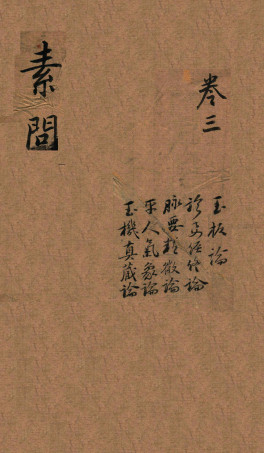 素問
卷三
玉板論
診要經終論
脉要精微論
平人氣象論
玉機真藏論